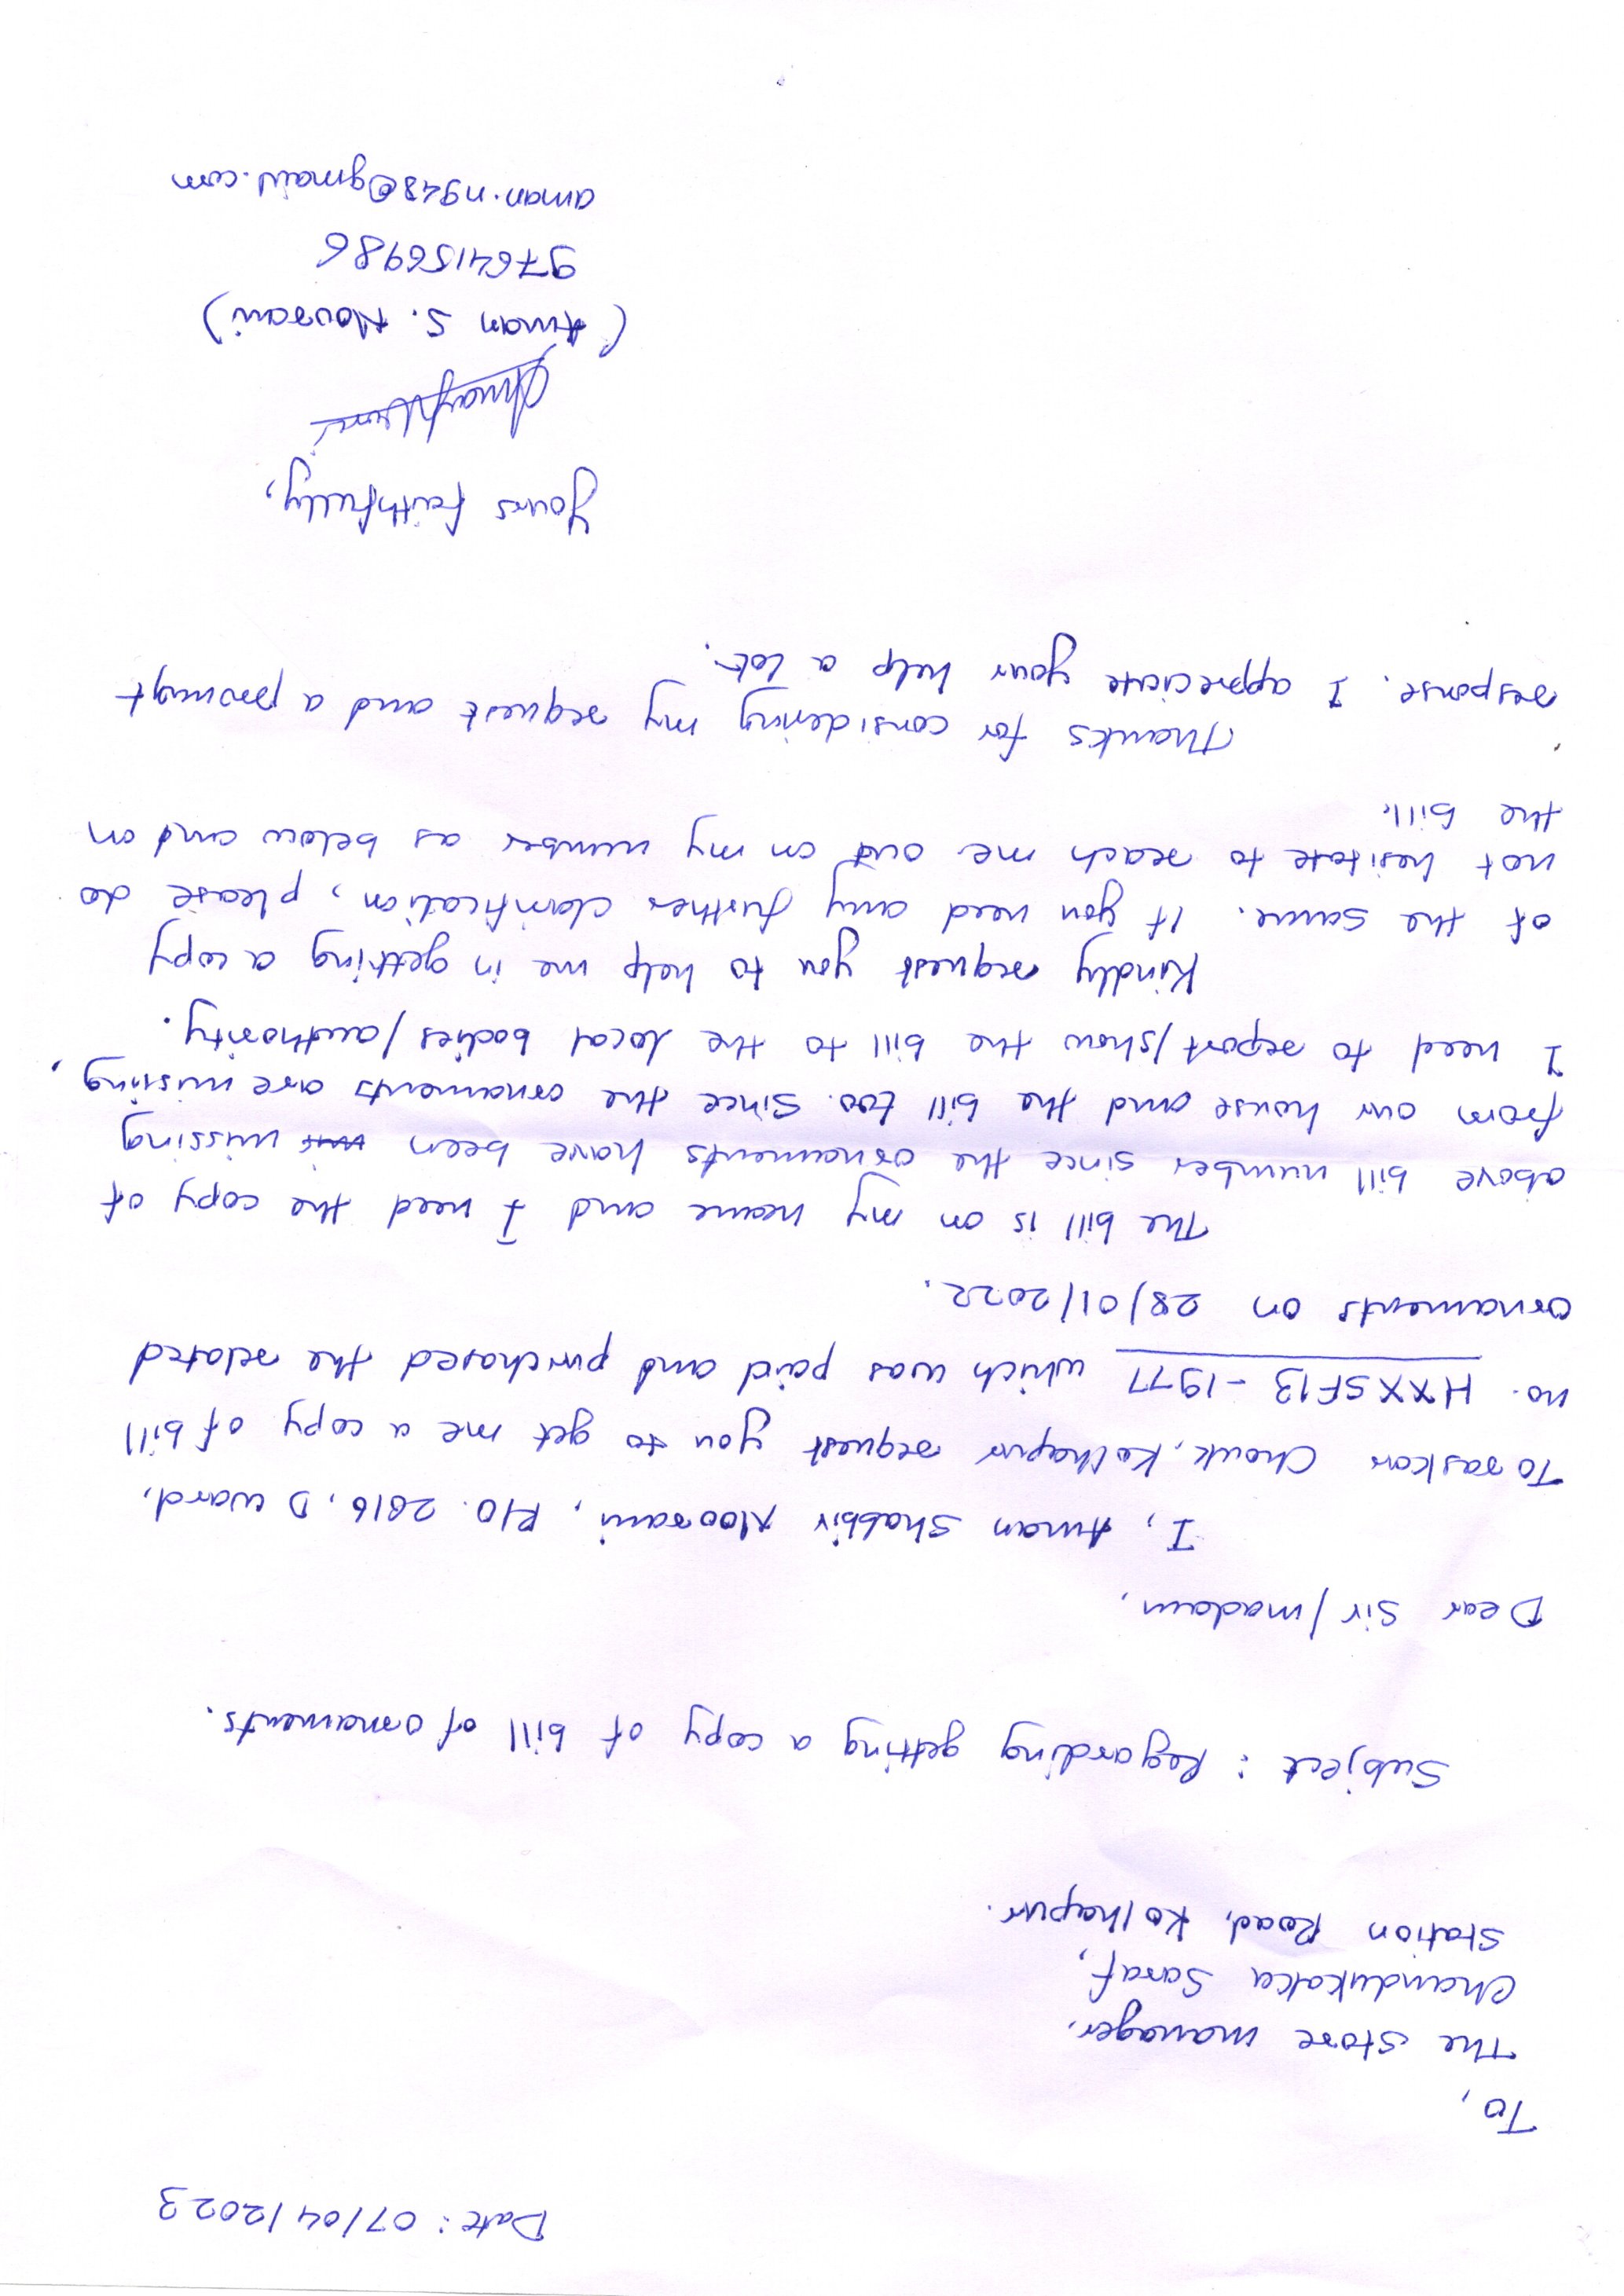 Date: 07/04/2023
To,
The store manager,
Chandukaka Saraf,
Station Road, Kolhapur.
Subject: Regarding getting a copy of bill of ornaments.
Dear Sir/madam,
I, Aman Shabbir Noorani, R/O. 2816, D ward,
Toraskar Chowk, Kolhapur request you to get me a copy of bill
no. HXXSF13-1977 which was paid and purchased the related
ornaments on 28/01/2022.
The bill is on my name and I need the copy of
above bill number since the ornaments have been missing
from our house and the bill too. Since the ornaments are missing,
I need to report/show the bill to the local bodies/authority.
Kindly request you to help me in getting a copy
of the same. If you need any further clarification, please do
not hesitate to reach me out on my number as below and on
the bill.
Thanks for considering my request and a prompt
response. I appreciate your help a lot.
Yours faithfully,
(Aman S. Noorani)
9764156986
aman.n948@gmail.com